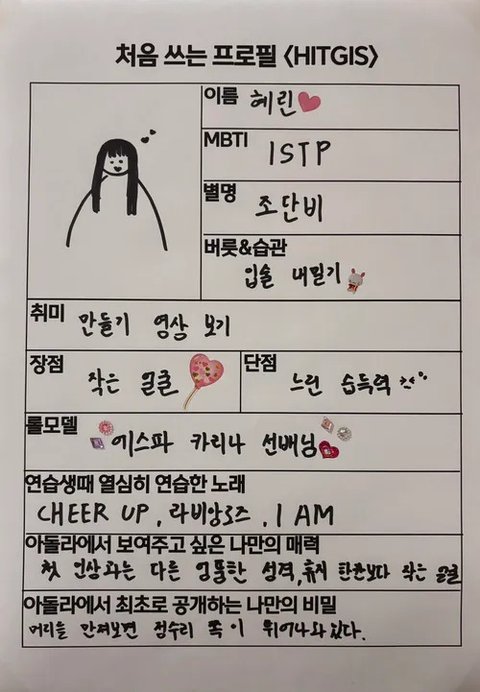 처음 쓰는 프로필 <HITGIS>
이름 혜린
MBTI
ISTP
별명
조단비
버릇&습관
입술 내밀기
취미
만들기 영상 보기
장점
작은 얼굴
단점
느린 습득력
롤모델
에스파 카리나 선배님
연습생때 열심히 연습한 노래
CHEER UP, 라비앙로즈, I AM
아돌라에서 보여주고 싶은 나만의 매력
첫 인상과는 다른 엉뚱한 성격, 휴지 한칸보다 작은 얼굴
아돌라에서 최초로 공개하는 나만의 비밀
머리를 만져보면 정수리 쪽이 튀어나와있다.